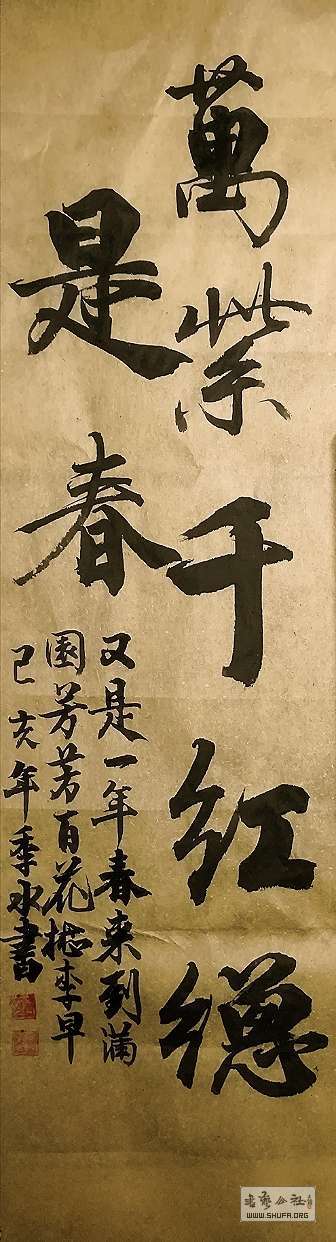 萬紫千紅總
是春
又是一年春来到滿
園芳百花李早
己亥年季水書
WWW.SHUFA.ORG